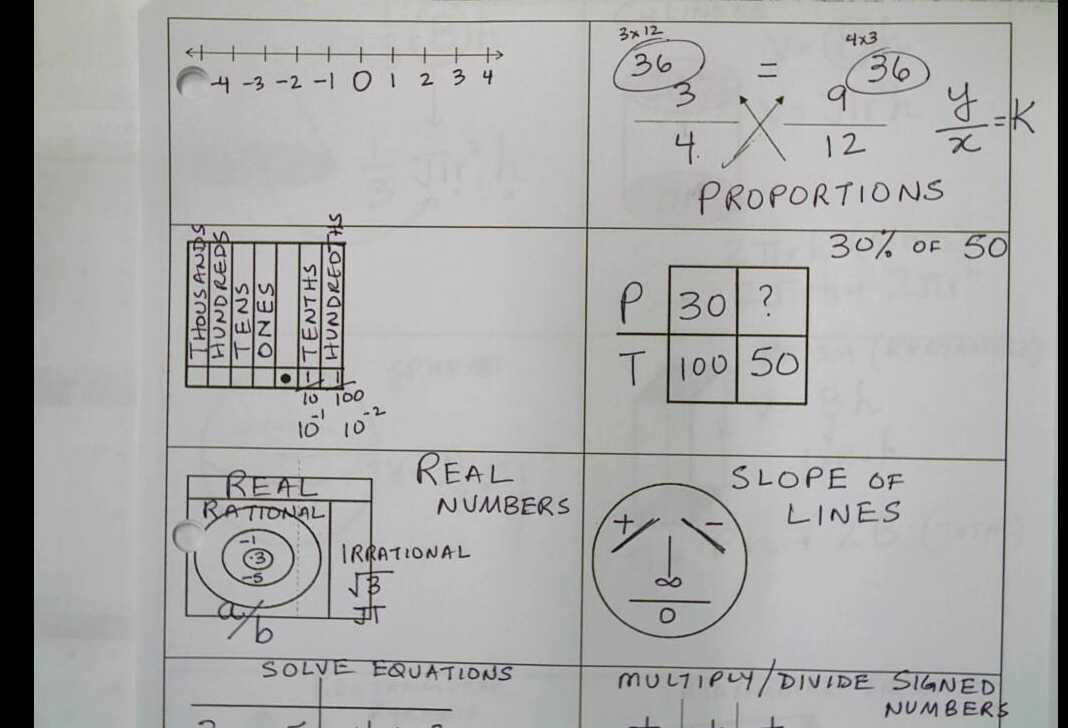 -4 -3 -2 -1 0 1 2 3 4
3x12 4x3
36 = 36
3 9
4 12
y/x = K
PROPORTIONS
THOUSANDS
HUNDREDS
TENS
ONES
.
TENTHS
HUNDREDTHS
1/10 1/100
10⁻¹ 10⁻²
30% OF 50
P 30 ?
T 100 50
REAL
RATIONAL
-1
.3
-5
a/b
IRRATIONAL
√3
REAL
NUMBERS
SLOPE OF
LINES
+ -
∞
0
SOLVE EQUATIONS
MULTIPLY/DIVIDE SIGNED
NUMBERS